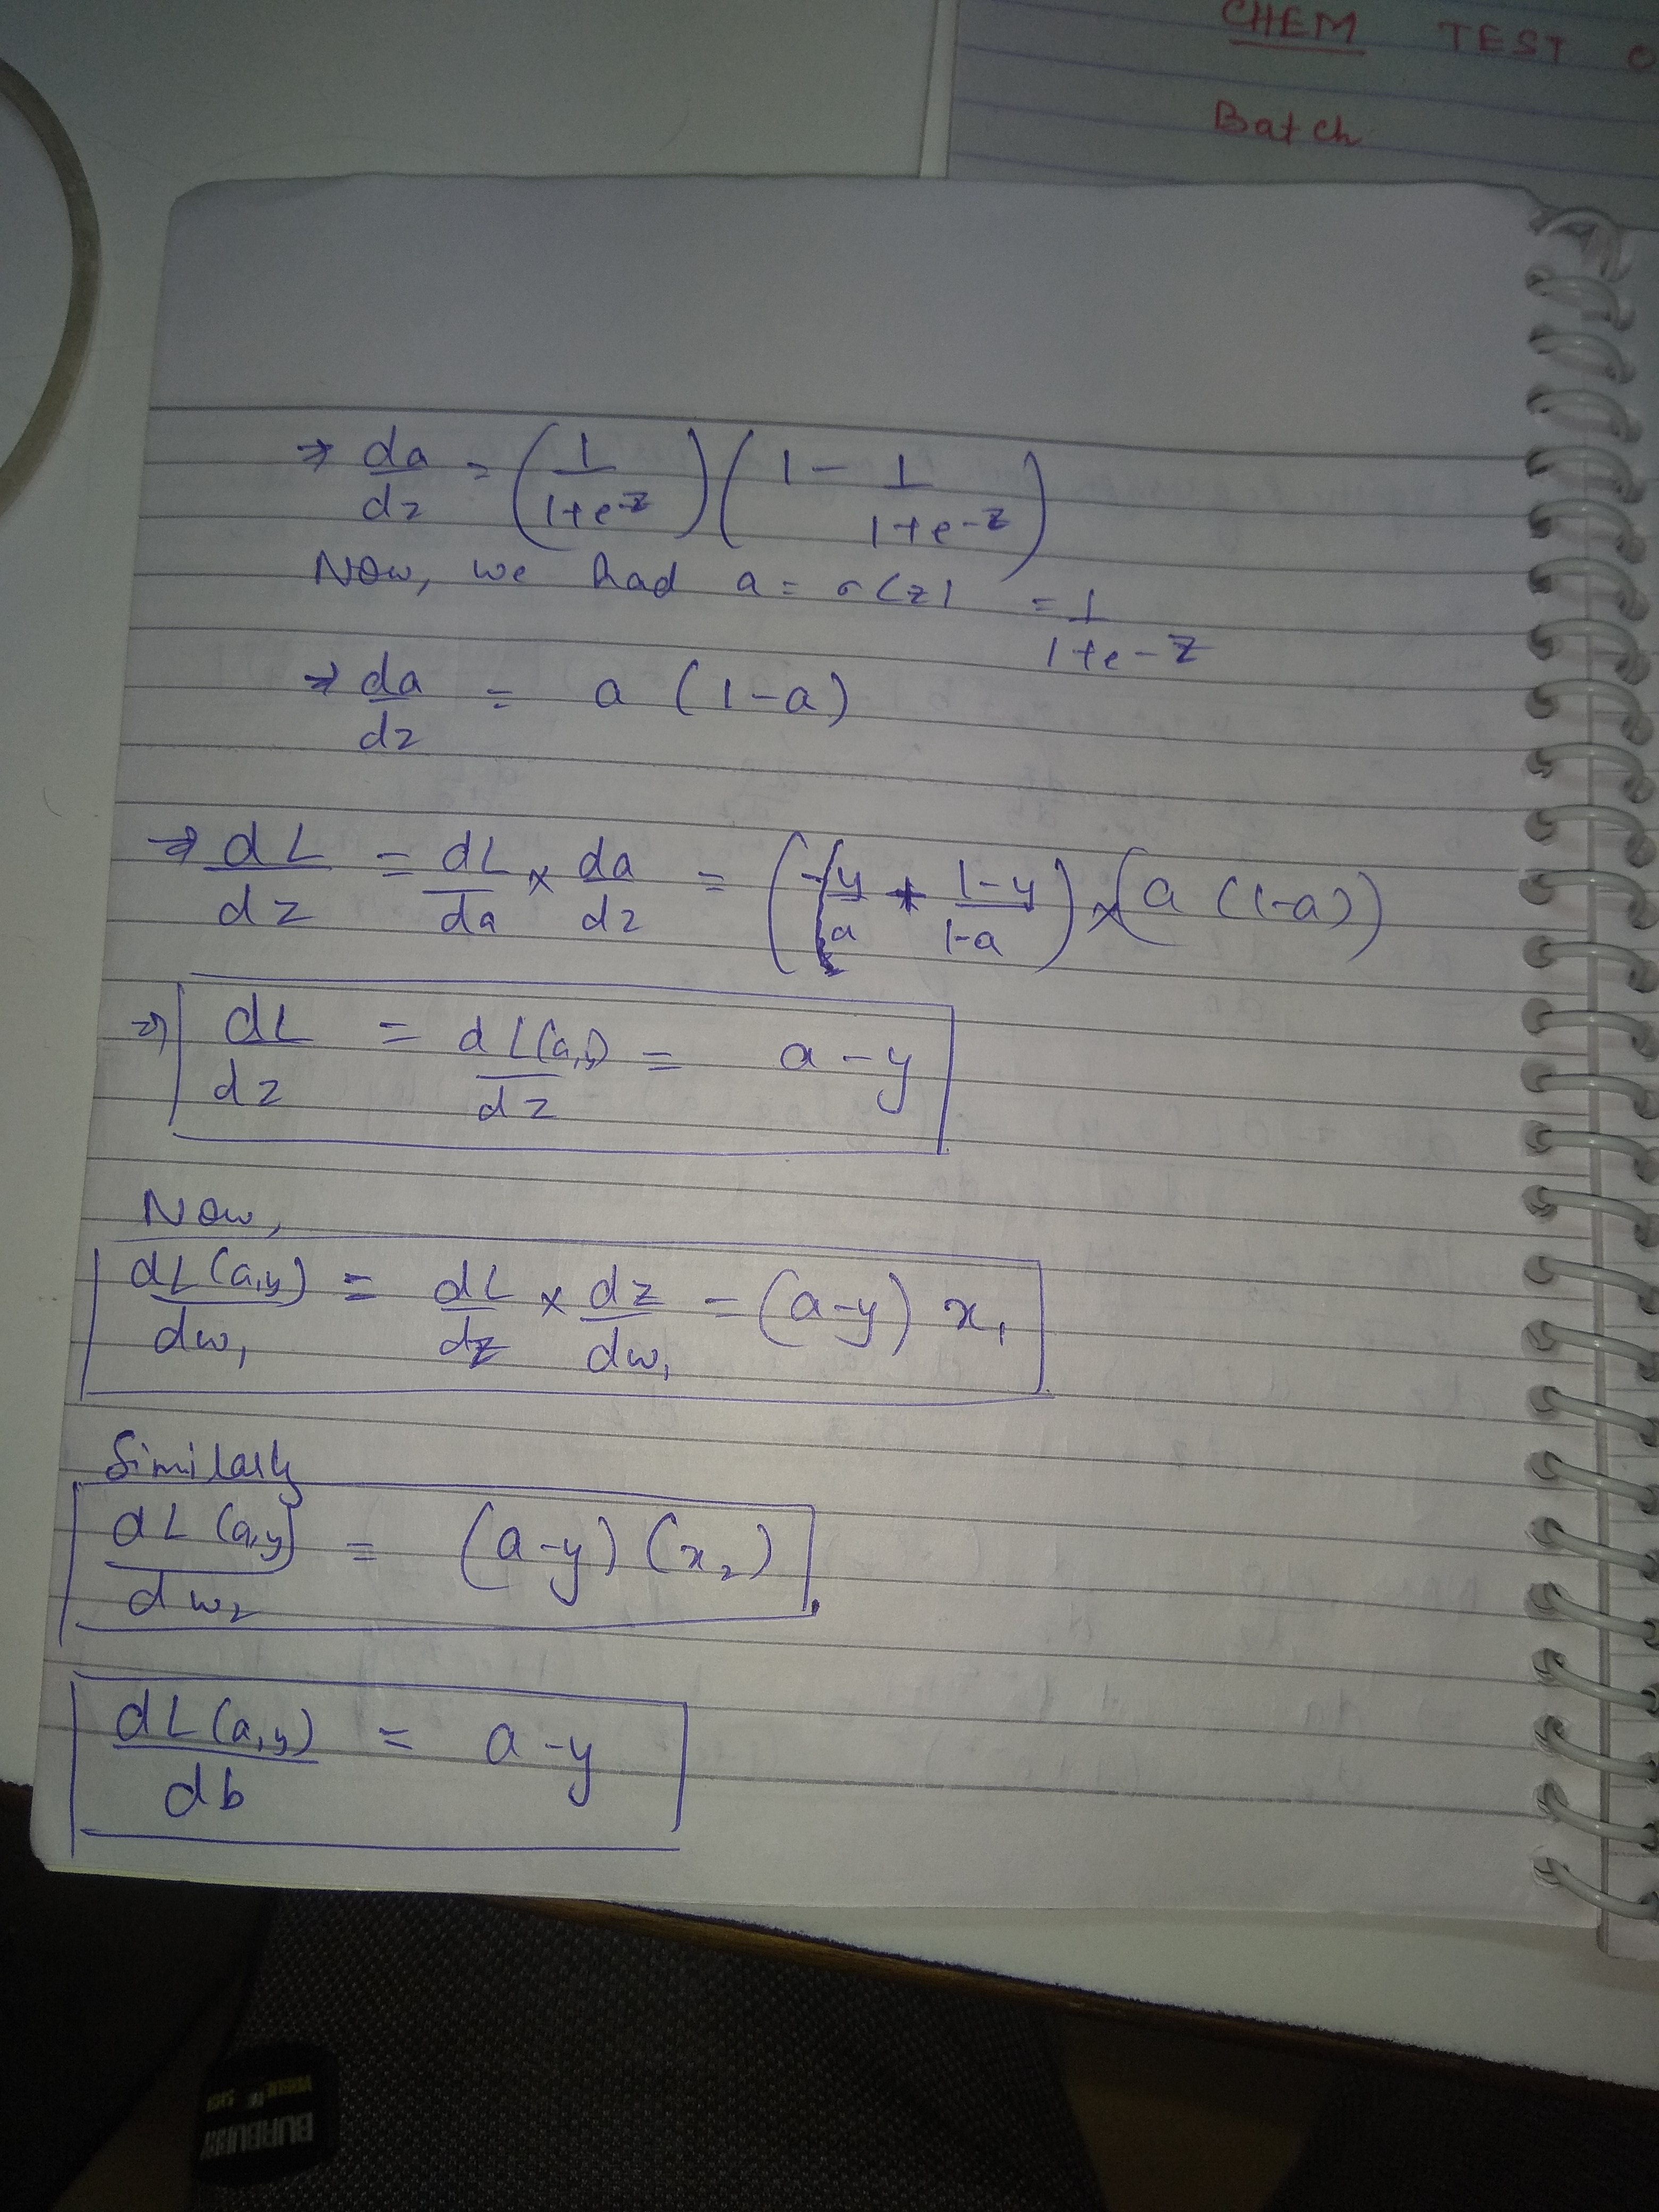 CHEM TEST
Batch
⇒ da/dz = (1/(1+e^-z)) (1 - 1/(1+e^-z))
Now, we had a = σ(z) = 1/(1+e^-z)
⇒ da/dz = a (1-a)
⇒ dL/dz = dL/da × da/dz = (-y/a + (1-y)/(1-a)) × (a (1-a))
⇒ dL/dz = dL(a,y)/dz = a - y
Now,
dL(a,y)/dw₁ = dL/dz × dz/dw₁ = (a-y) x₁
Similarly
dL(a,y)/dw₂ = (a-y) (x₂)
dL(a,y)/db = a - y